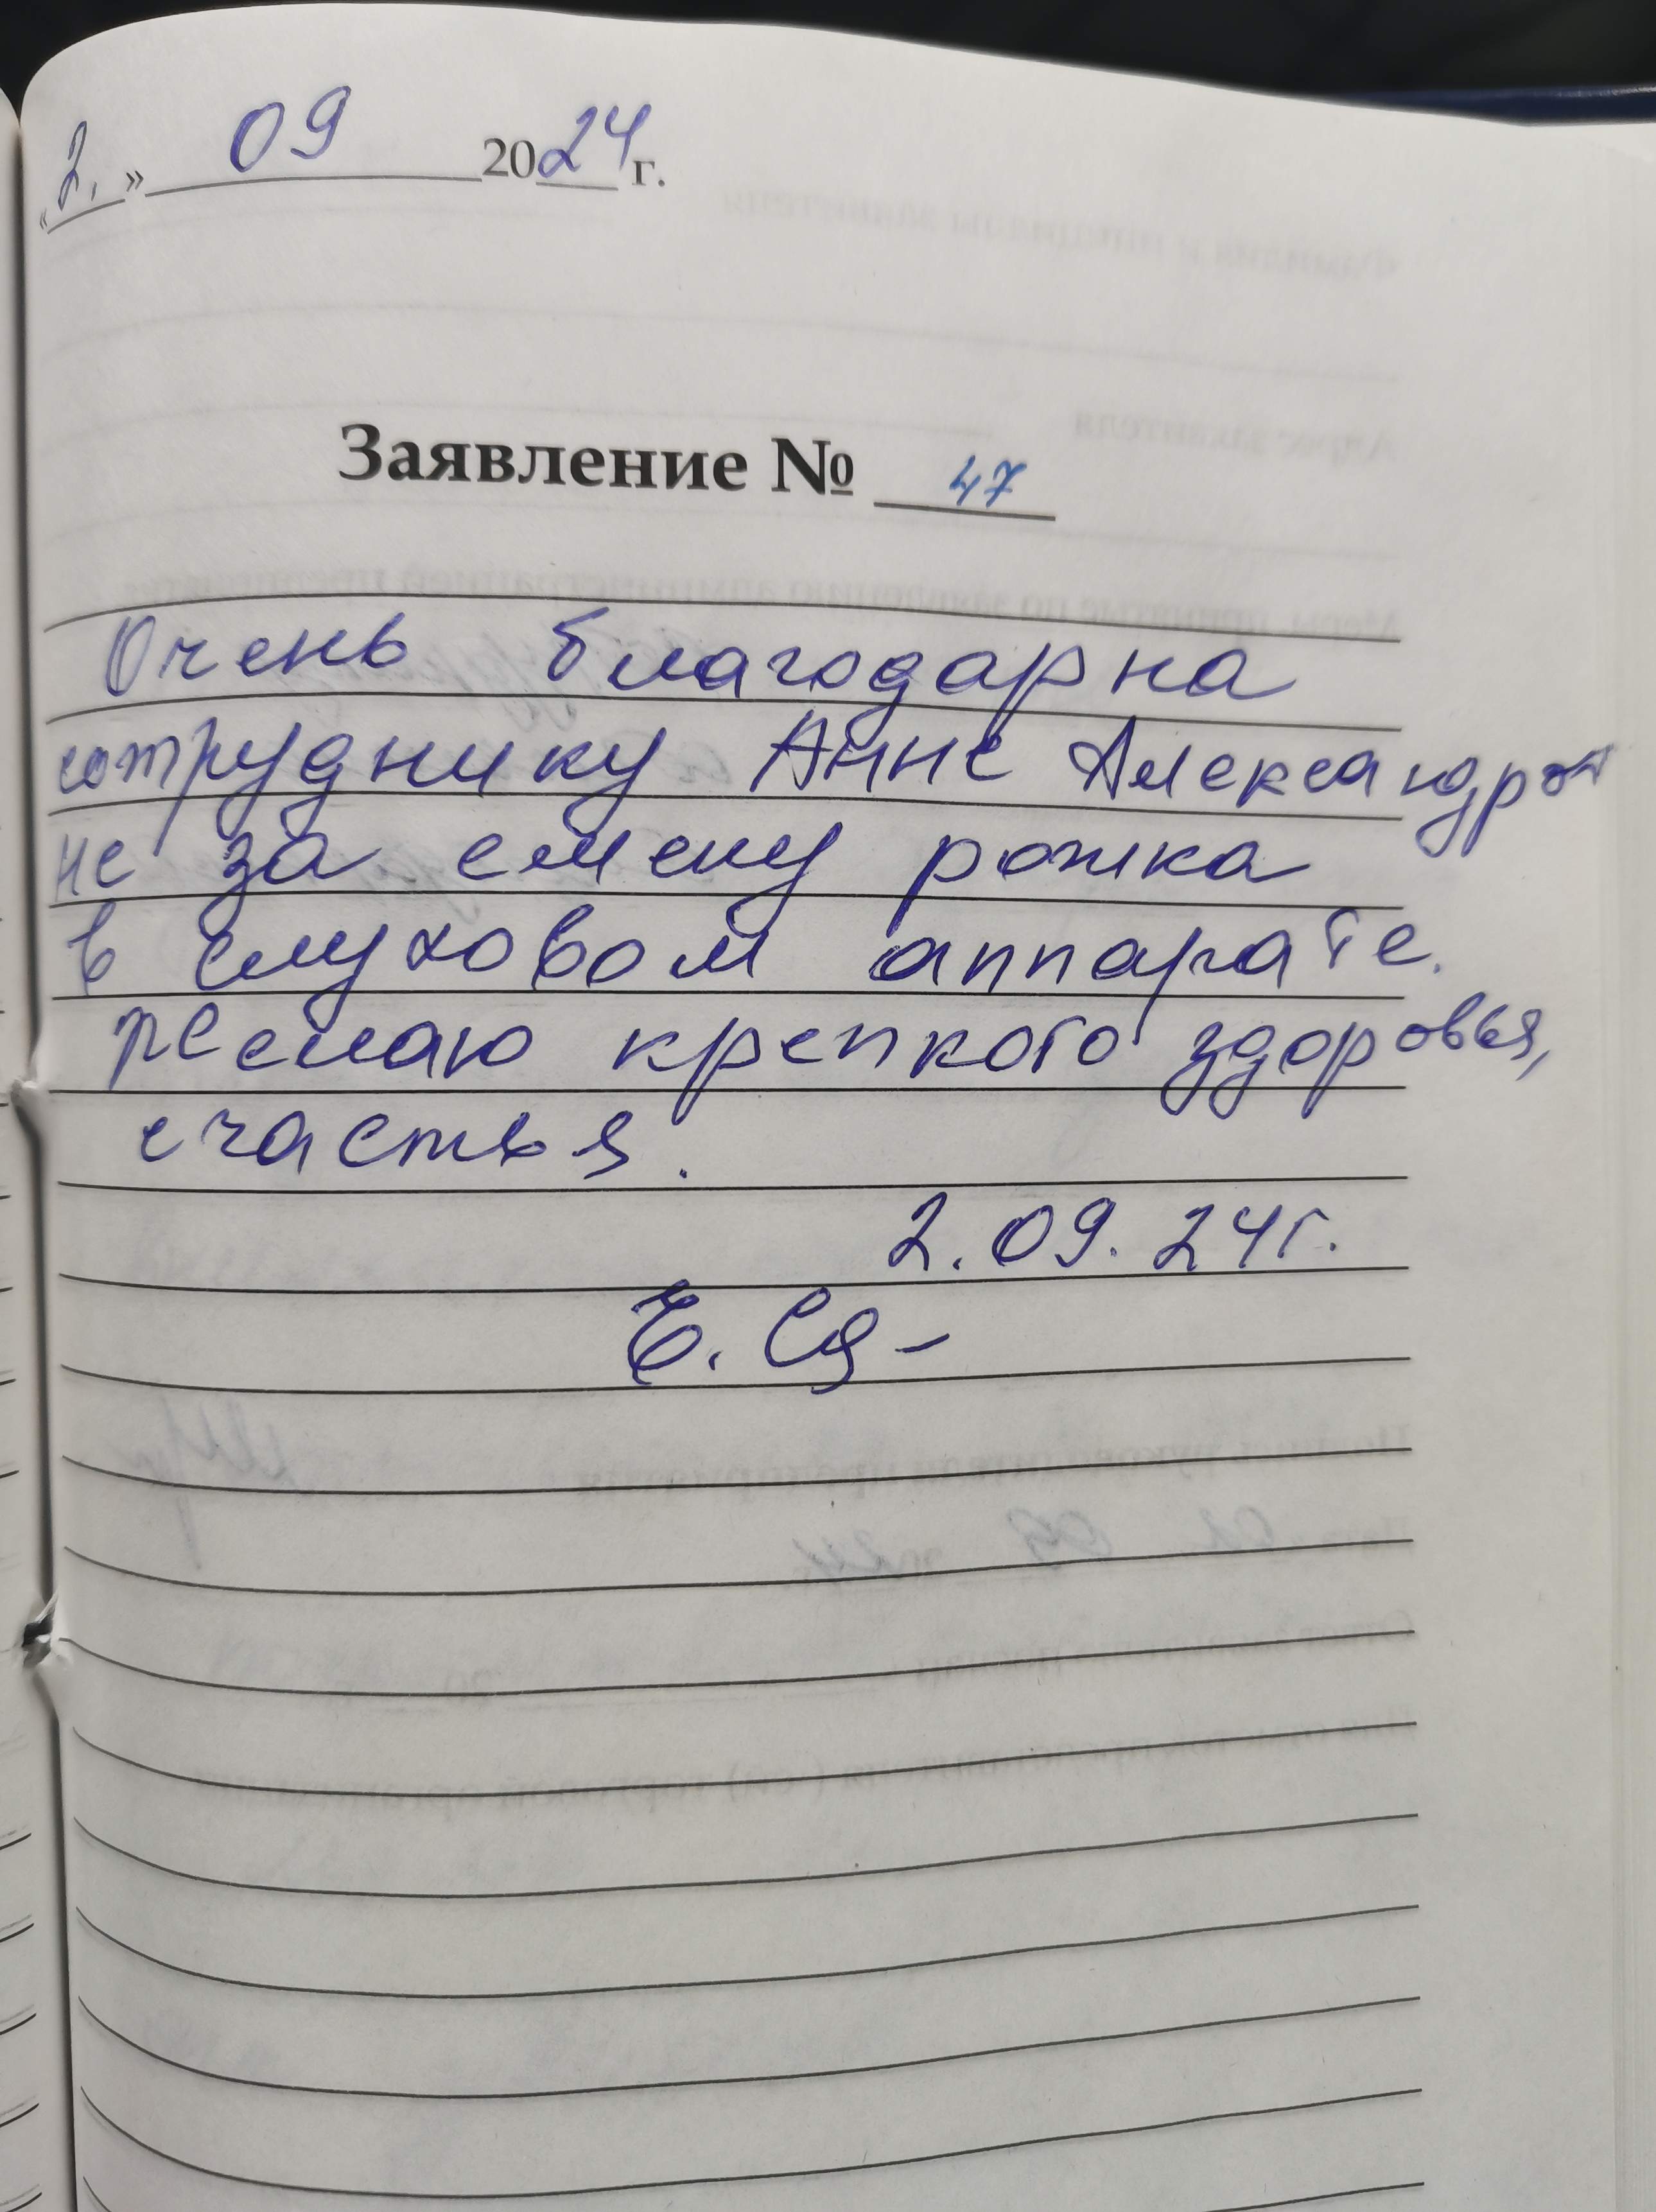 «2.» 09 2024 г.
Заявление № 47
Очень благодарна
сотруднику Анне Александров
не за смену рожка
в слуховом аппарате.
желаю крепкого здоровья,
счастья.
2.09.24г.